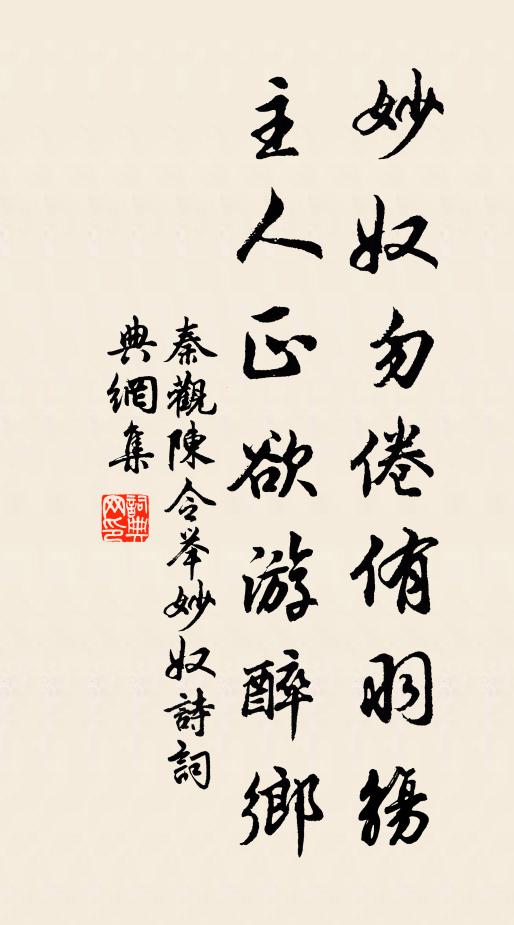 妙奴勿倦侑羽觴
主人正欲游醉鄉
秦觀陳令举妙奴詩詞
典網集
詞典網印